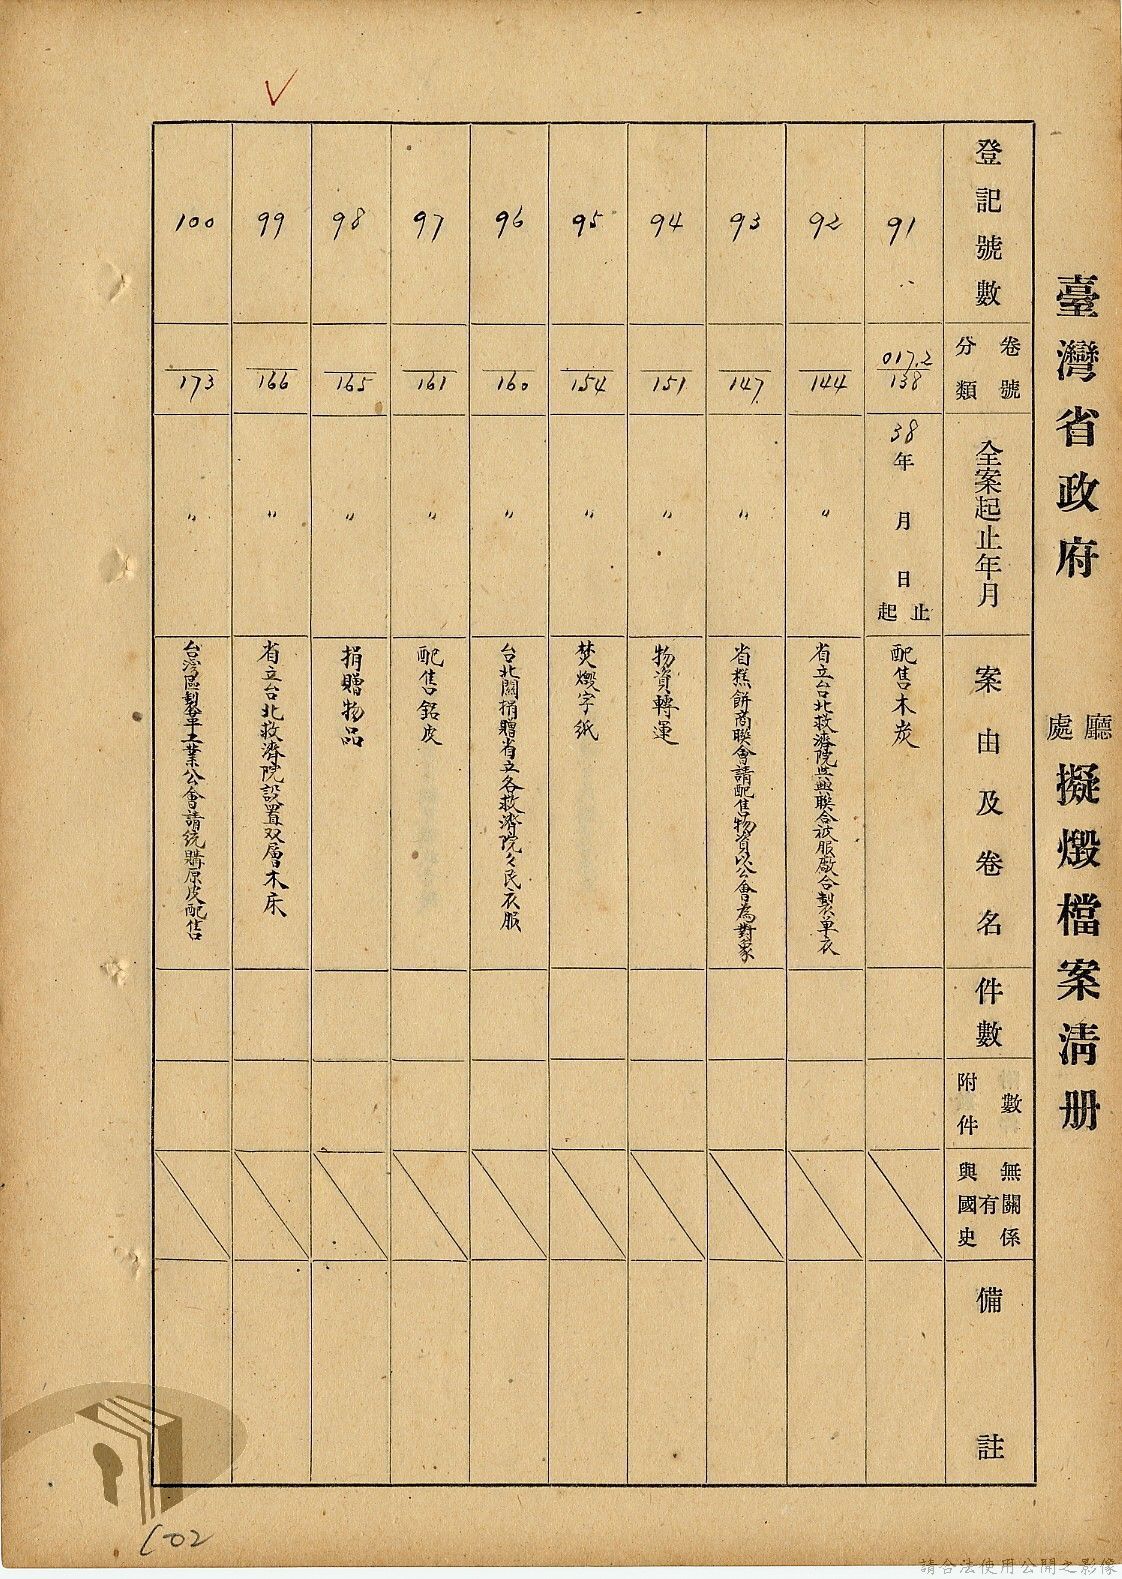 臺灣省政府 廳處 擬燬檔案清册
登記號數
分類 卷號
全案起止年月
案由及卷名
件數
附件數
與國史有無關係
備註
91
017.2
138
38年 月 日 起止
配售木炭
92
144
〃
省立台北救濟院與聯合被服廠合製單衣
93
147
〃
省糕餅商聯會請配售物資以公會為對象
94
151
〃
物資轉運
95
154
〃
焚燬字紙
96
160
〃
台北關捐贈省立各救濟院々民衣服
97
161
〃
配售鋁皮
98
165
〃
捐贈物品
99
166
〃
省立台北救濟院設置双層木床
100
173
〃
台灣區製革工業公會請統購原皮配售
102
請合法使用公開之影像